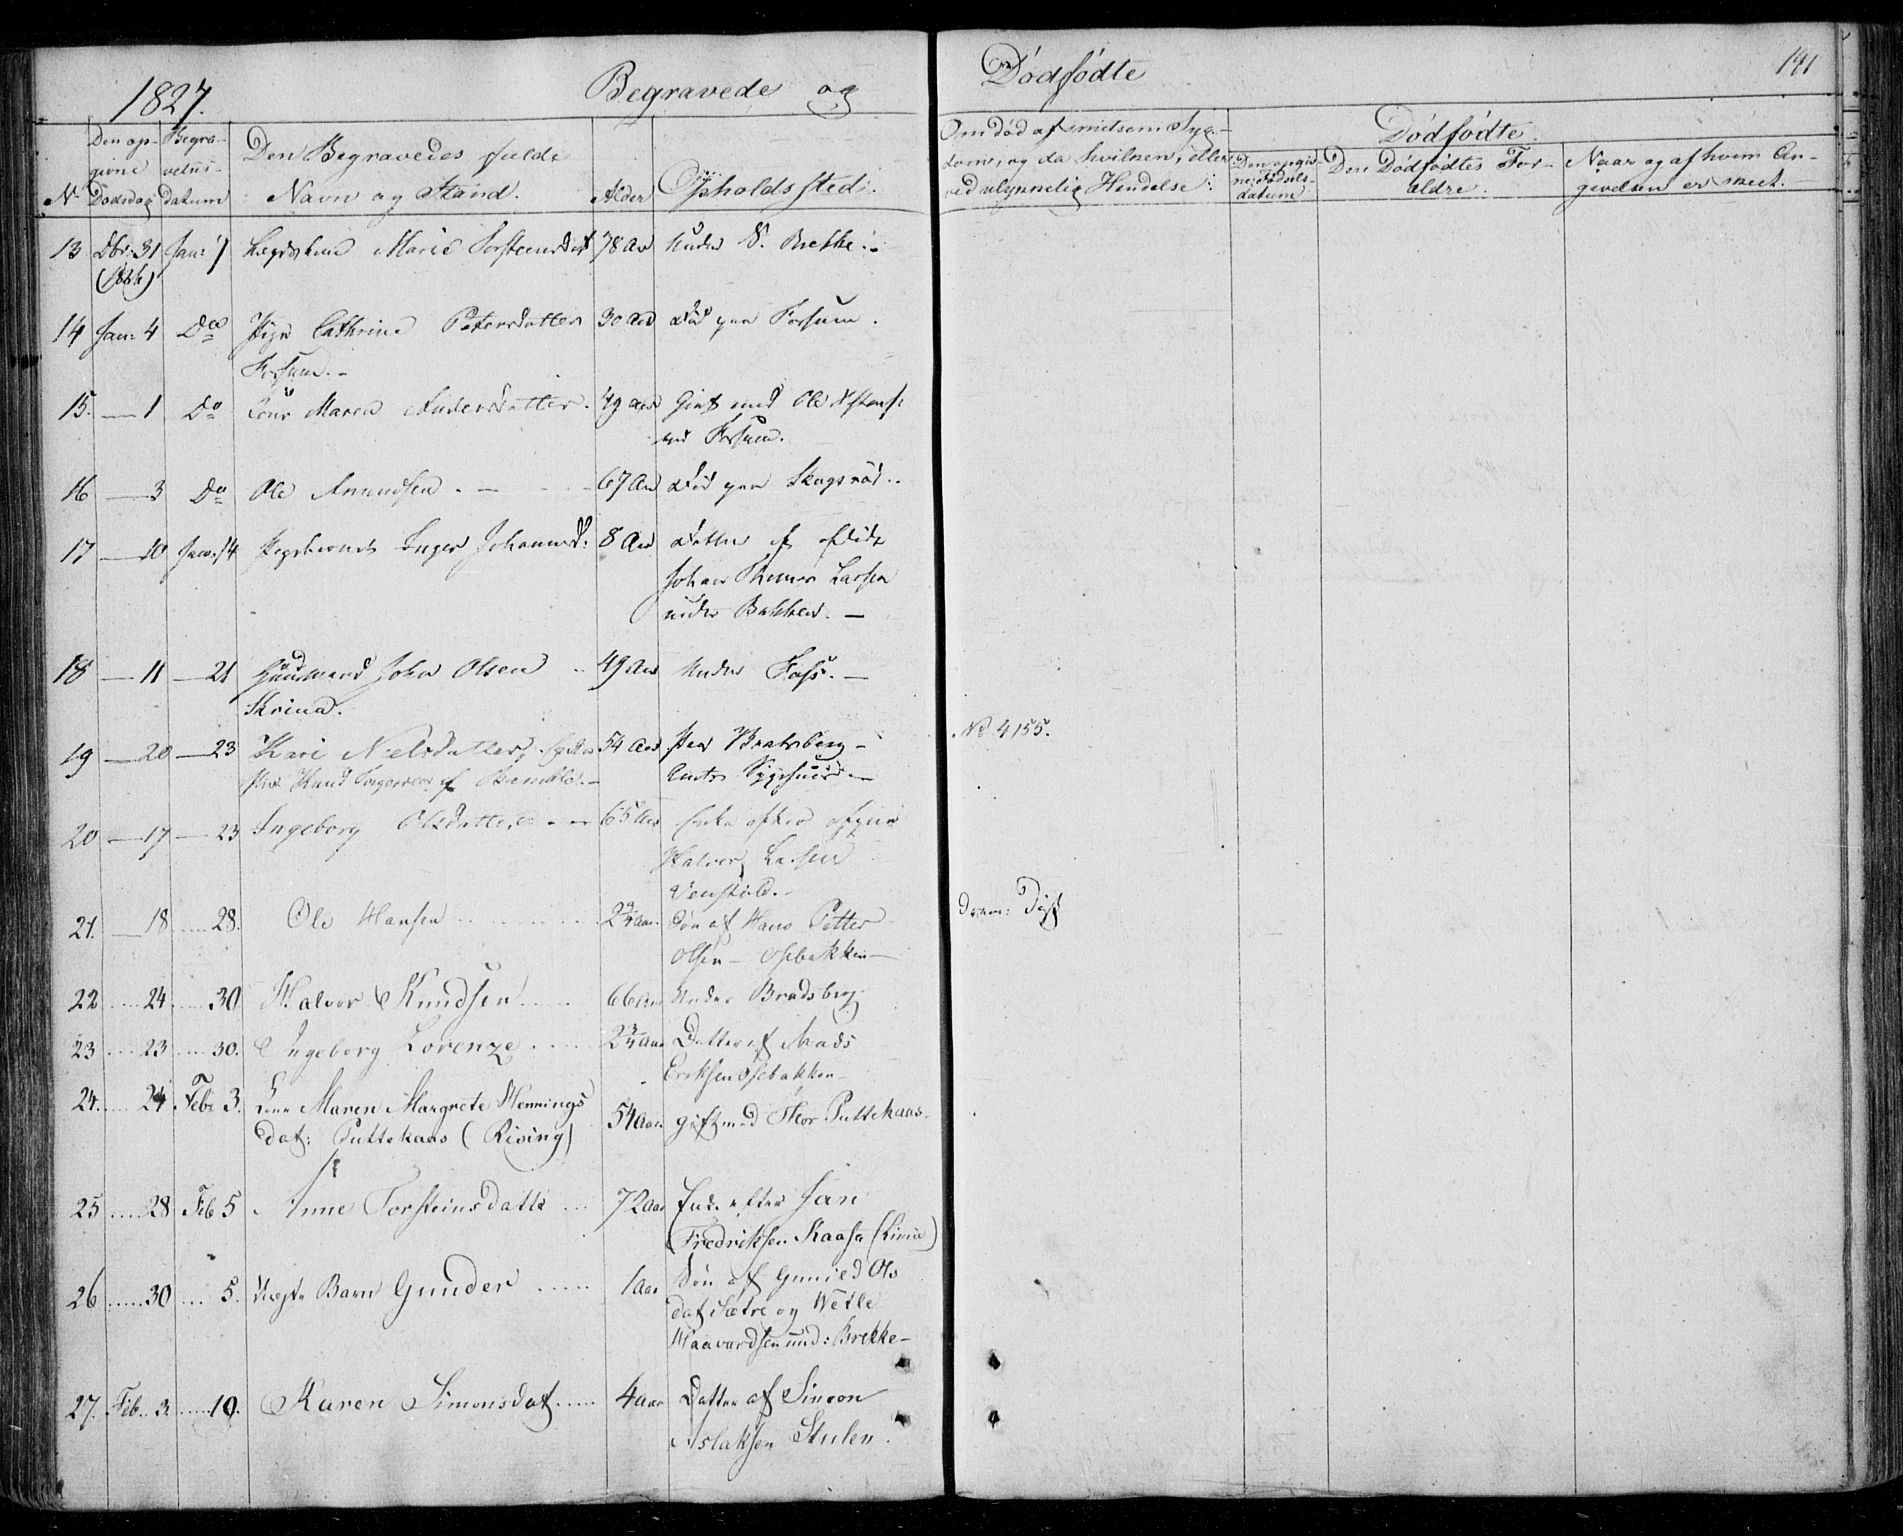 1827. Begravede og Dødfødte 191
Nr Den opgivne Dødsdag Begravelsesdatum Den Begravedes fulde Navn og Stand. Alder Opholdssted. Om død af smitsom Sygdom, og da hvilken, eller ved ulykkelig Hendelse: Dødfødte.
Den opgivne Fødselsdatum Den Dødfødtes Forældre. Naar og af hvem Angivelsen er skeet.
13 Dbr: 31 Jan: 7 Marie Torsteensdat 78 Aar Under V. Brekke.
14 Jan: 4 Do Pige Cathrine Petersdatter 30 Aar død paa Forsum.
Forsum.
15. — 1 Do Kone Maren Andersdatter. 49 Aar Gift med Ole
Forsum.
16 — 3 Do Ole Amundsen 67 Aar død paa Skogsrød.
17 — 10 Jan: 14 Inger Johannesd: 8 Aar Datter af afdøde
Johan Larsen
under Bakken.
18 — 11 — 21 Huusmand John Olsen 49 Aar Under Foss.
Skrina.
19 — 20 — 23 Kari Nielsdatter, 54 Aar Paa Bratsberg
Knud af Bamble. Amts Sygehuus.
No 4155.
20 — 17 — 23 Ingeborg Olsdatter 65 Aar Enke efter
Halvor Larsen
Venstøb.
21. — 18 ... 28. Ole Hansen 2 3/4 Aar. Søn af Hans Petter
Olsen — Osebakken —
22 ... 24 ... 30 Halvor Knudsen 66 Aar Under Bradsberg
23 ... 23 ... 30. Ingeborg Lorenze 2 3/4 Aar Datter af Mads
Eriksen Osebakken
24. ... 24 Feb: 3. Kone Maren Margrete Hennings
dat: Puttekaas (Rising) 54 Aar. gift med Thor Puttekaas.
25 ... 28 Feb 5 Anne Torsteinsdatt: 72 Aar Enke efter Jan
Fredriksen Kaasa
26 ... 30 ... 5. Uægte Barn Gunder 1 Aar Søn af Gunild Ols
dat Sætre og Wetle
Haavardsen und: Brekke
27. Feb. 3. ... 10. Karen Simonsdat 4 Aar Datter af Simon
Aslaksen Stulen.